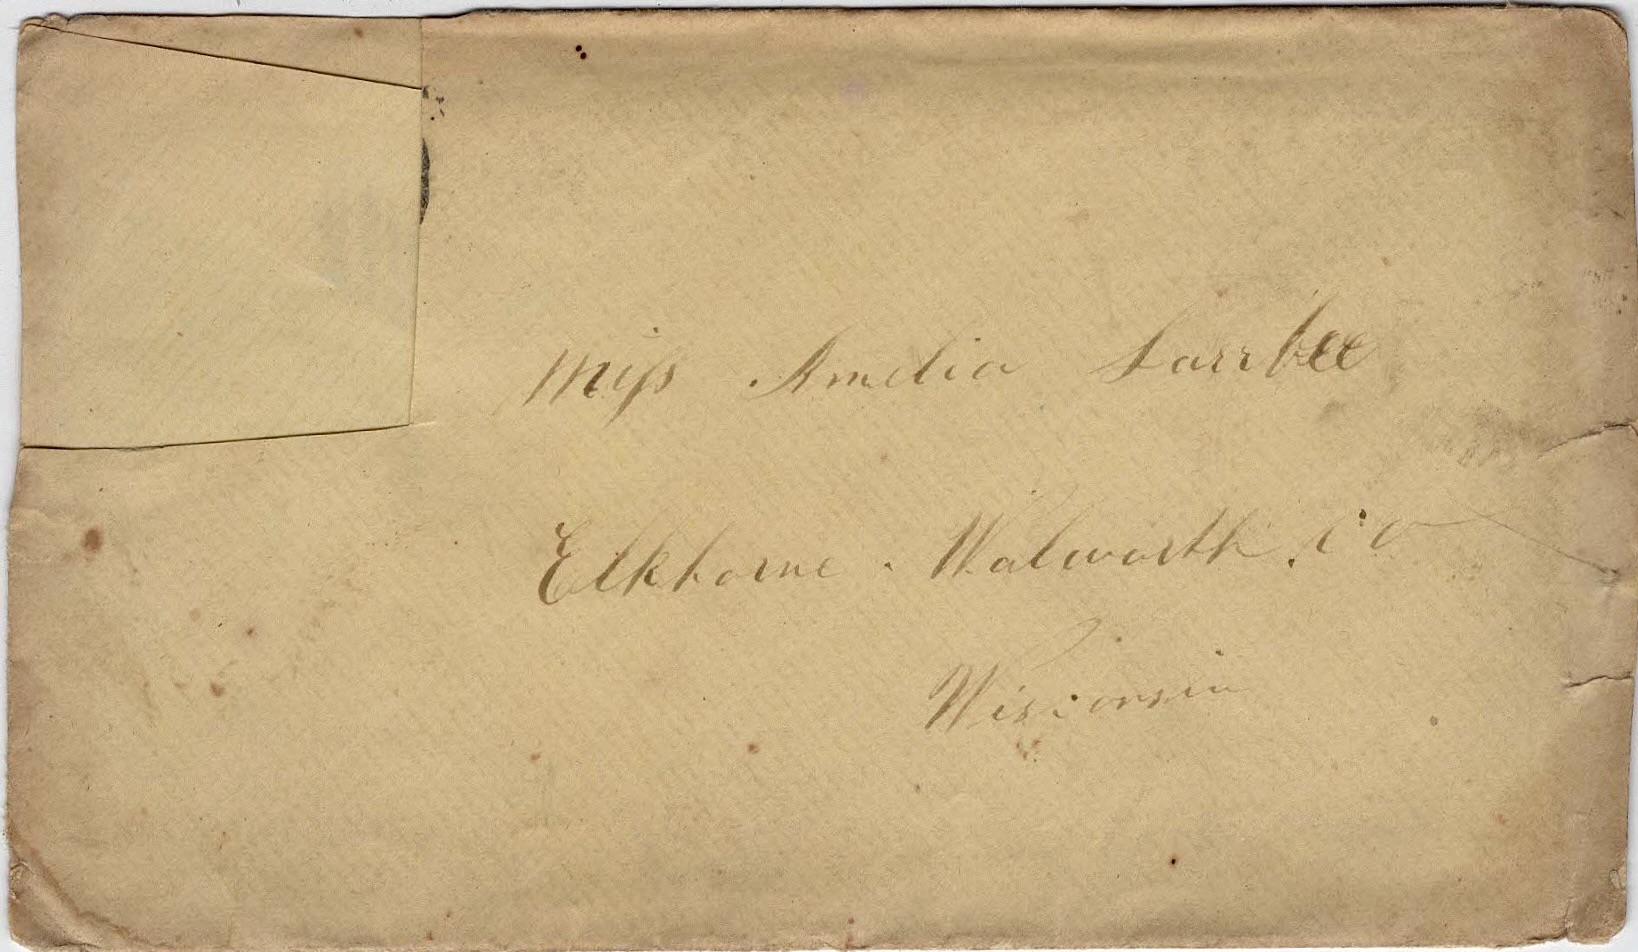 Miss Amelia Larrbee
Elkhorne . Walworth . Co
Wisconsin